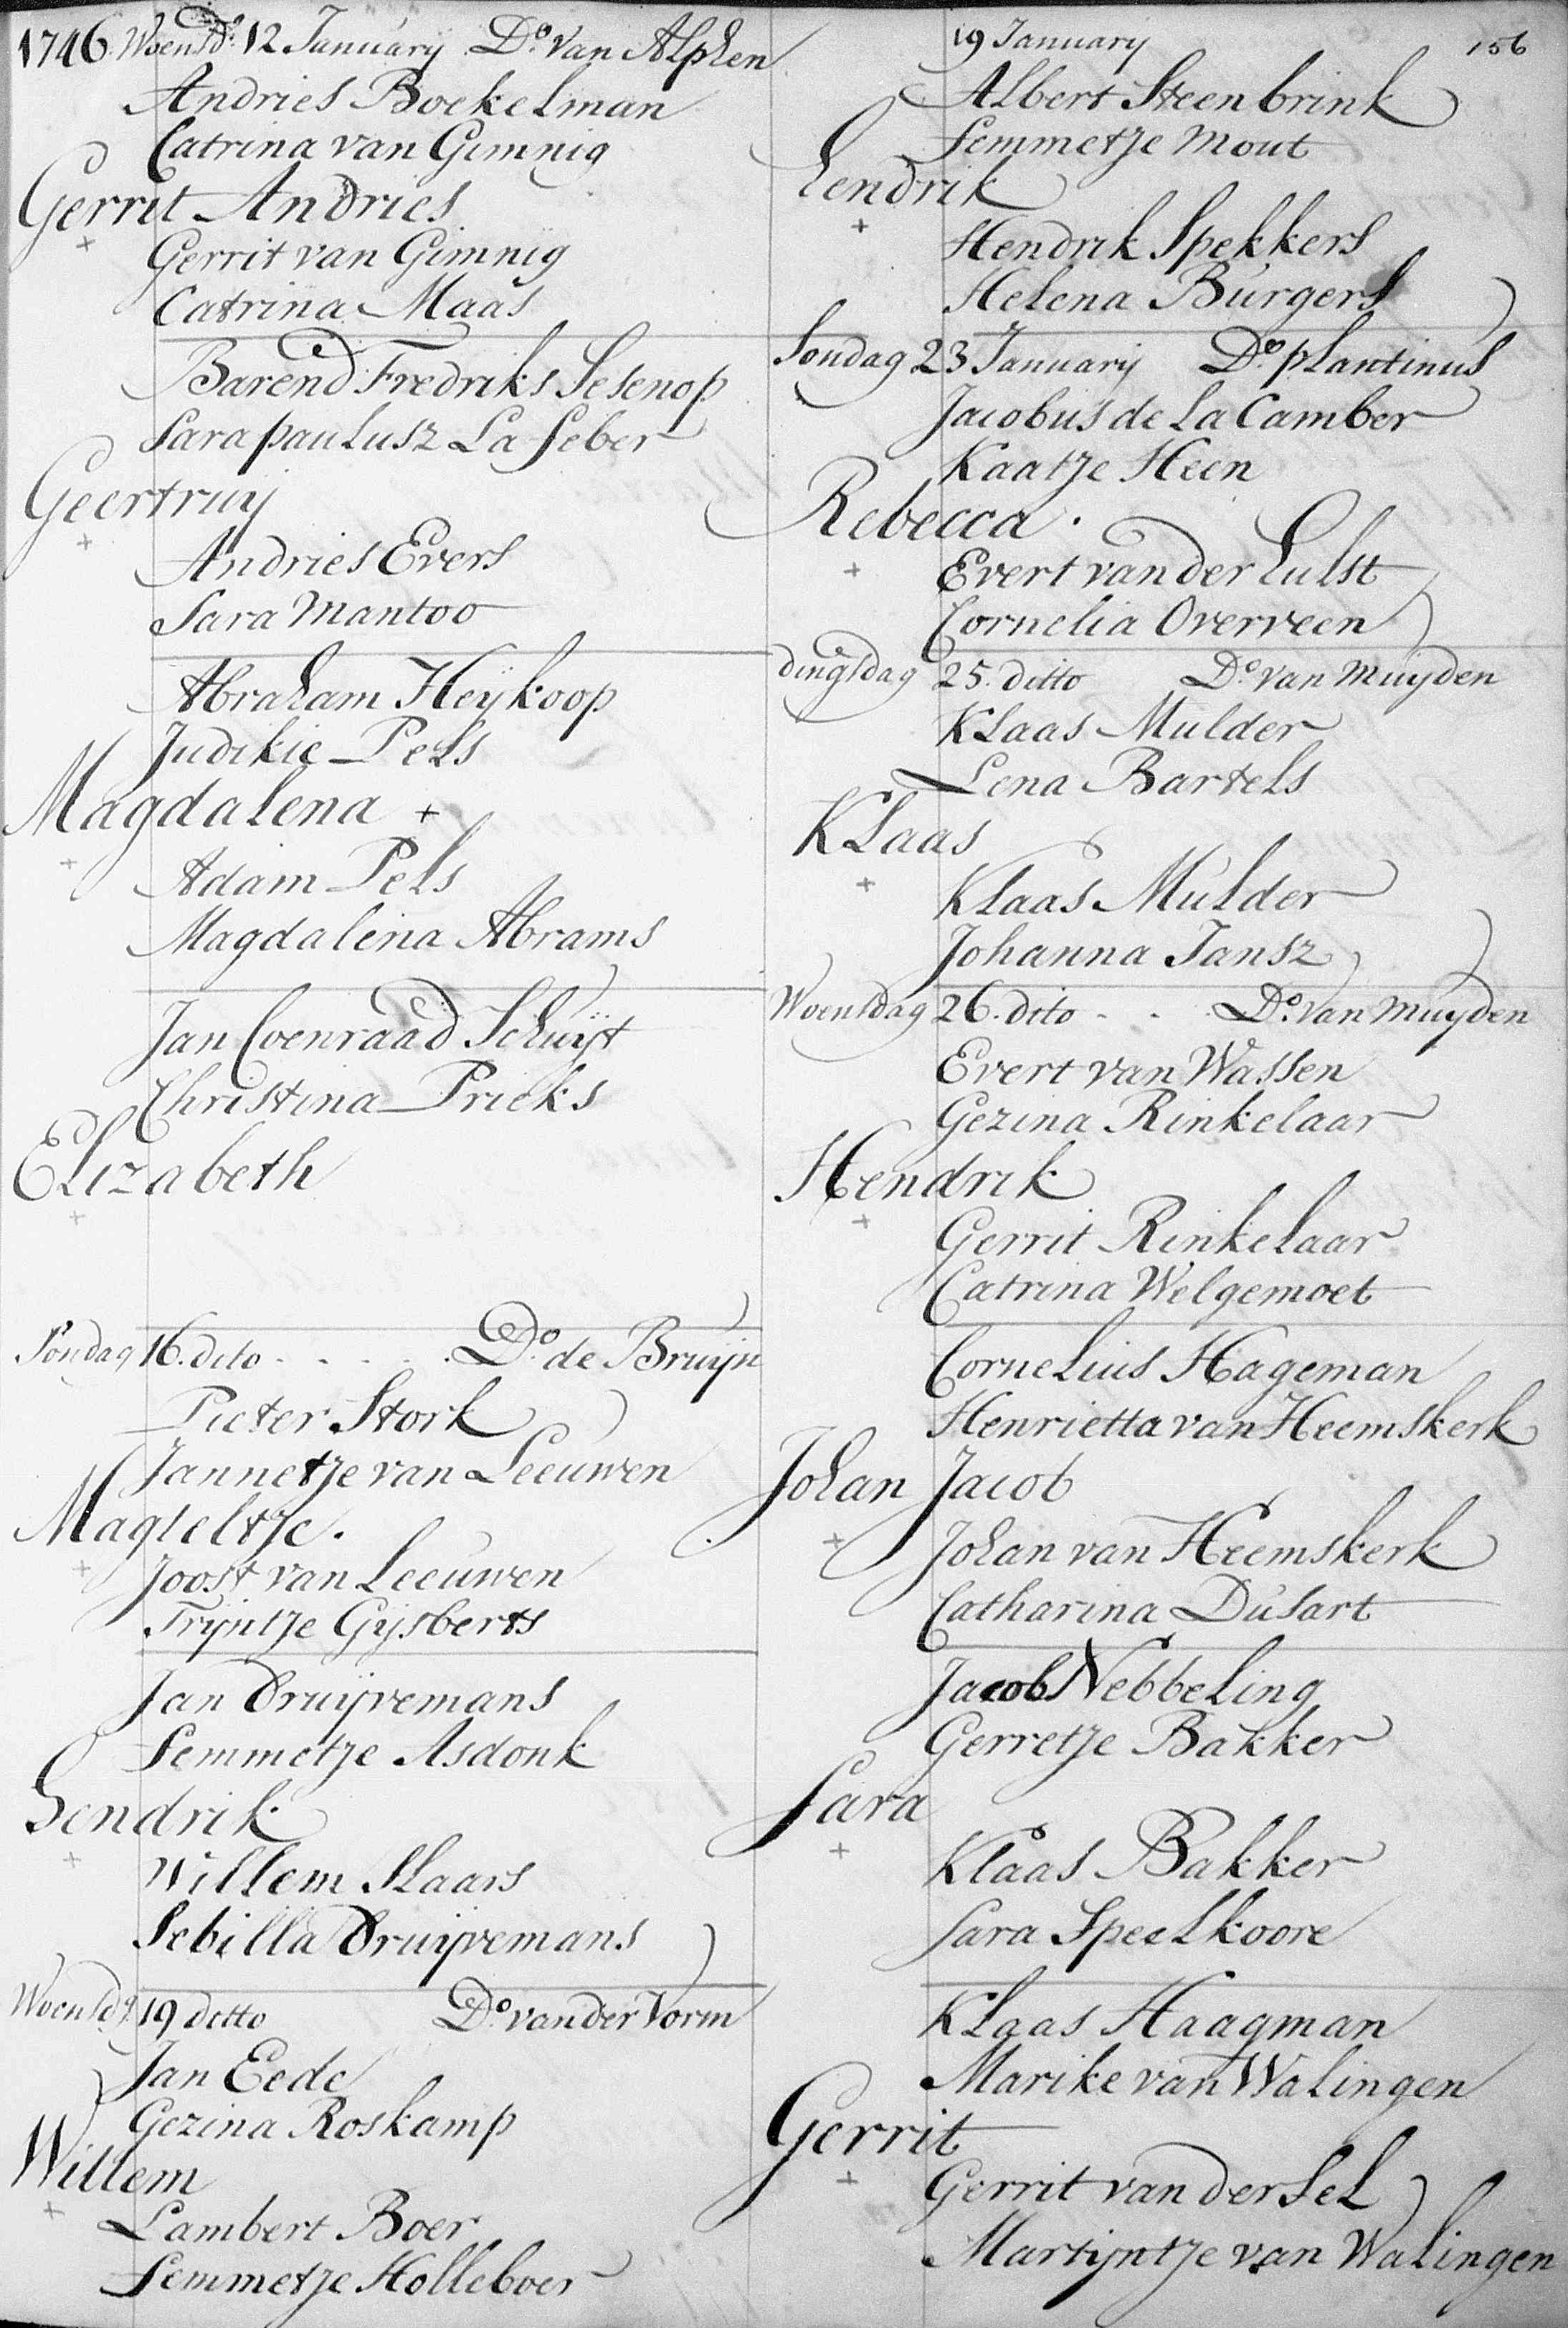 1746 Woensd: 12 January Do. van Alphen
Andries Boekelman
Catrina van Gimnig
Gerrit Andries
Gerrit van Gimnig
Catrina Maas
Barend Fredriks Sesenop
Sara paulusz La feber
Geertruy
Andries Evers
Sara Mantoo
Abraham Heykoop
Judikie Pels
Magdalena +
Adam Pels
Magdalena Abrams
Jan Coenraad Schuijt
Christina Prieks
Elizabeth
Sondag 16. dito - - - - Do. de Bruijn
Pieter Stork
Jannetje van Leeuwen
Magteltje.
Joost van Leeuwen
Trijntje Gijsberts
Jan Druijvemans
Femmetje Asdonk
Hendrik
Willem Slaars
Sebilla Druijvemans
Woensdg: 19 ditto Do. van der Vorm
Jan Eede
Gezina Roskamp
Willem
Lambert Boer
Femmetje Holleboer
19 January 156
Albert Steenbrink
Femmetje Mout
Hendrik
Hendrik Spekkers
Helena Burgers
Sondag 23 January Do. plantinus
Jacobus de la Camber
Kaatje Heen
Rebecca.
Evert van der Hulst
Cornelia Overveen
dingsdag 25. ditto Do. van Muyden
Klaas Mulder
Lena Bartels
Klaas
Klaas Mulder
Johanna Jansz
Woensdag 26. dito - - Do. van Muyden
Evert van Wassen
Gezina Rinkelaar
Hendrik
Gerrit Rinkelaar
Catrina Welgemoet
Cornelius Hageman
Henrietta van Heemskerk
Johan Jacob
Johan van Heemskerk
Catharina Dusart
Jacob Nebbeling
Gerretje Bakker
Sara
Klaas Bakker
Sara Speelkoore
Klaas Haagman
Marike van Walingen
Gerrit
Gerrit van der Sel
Martijntje van Walingen